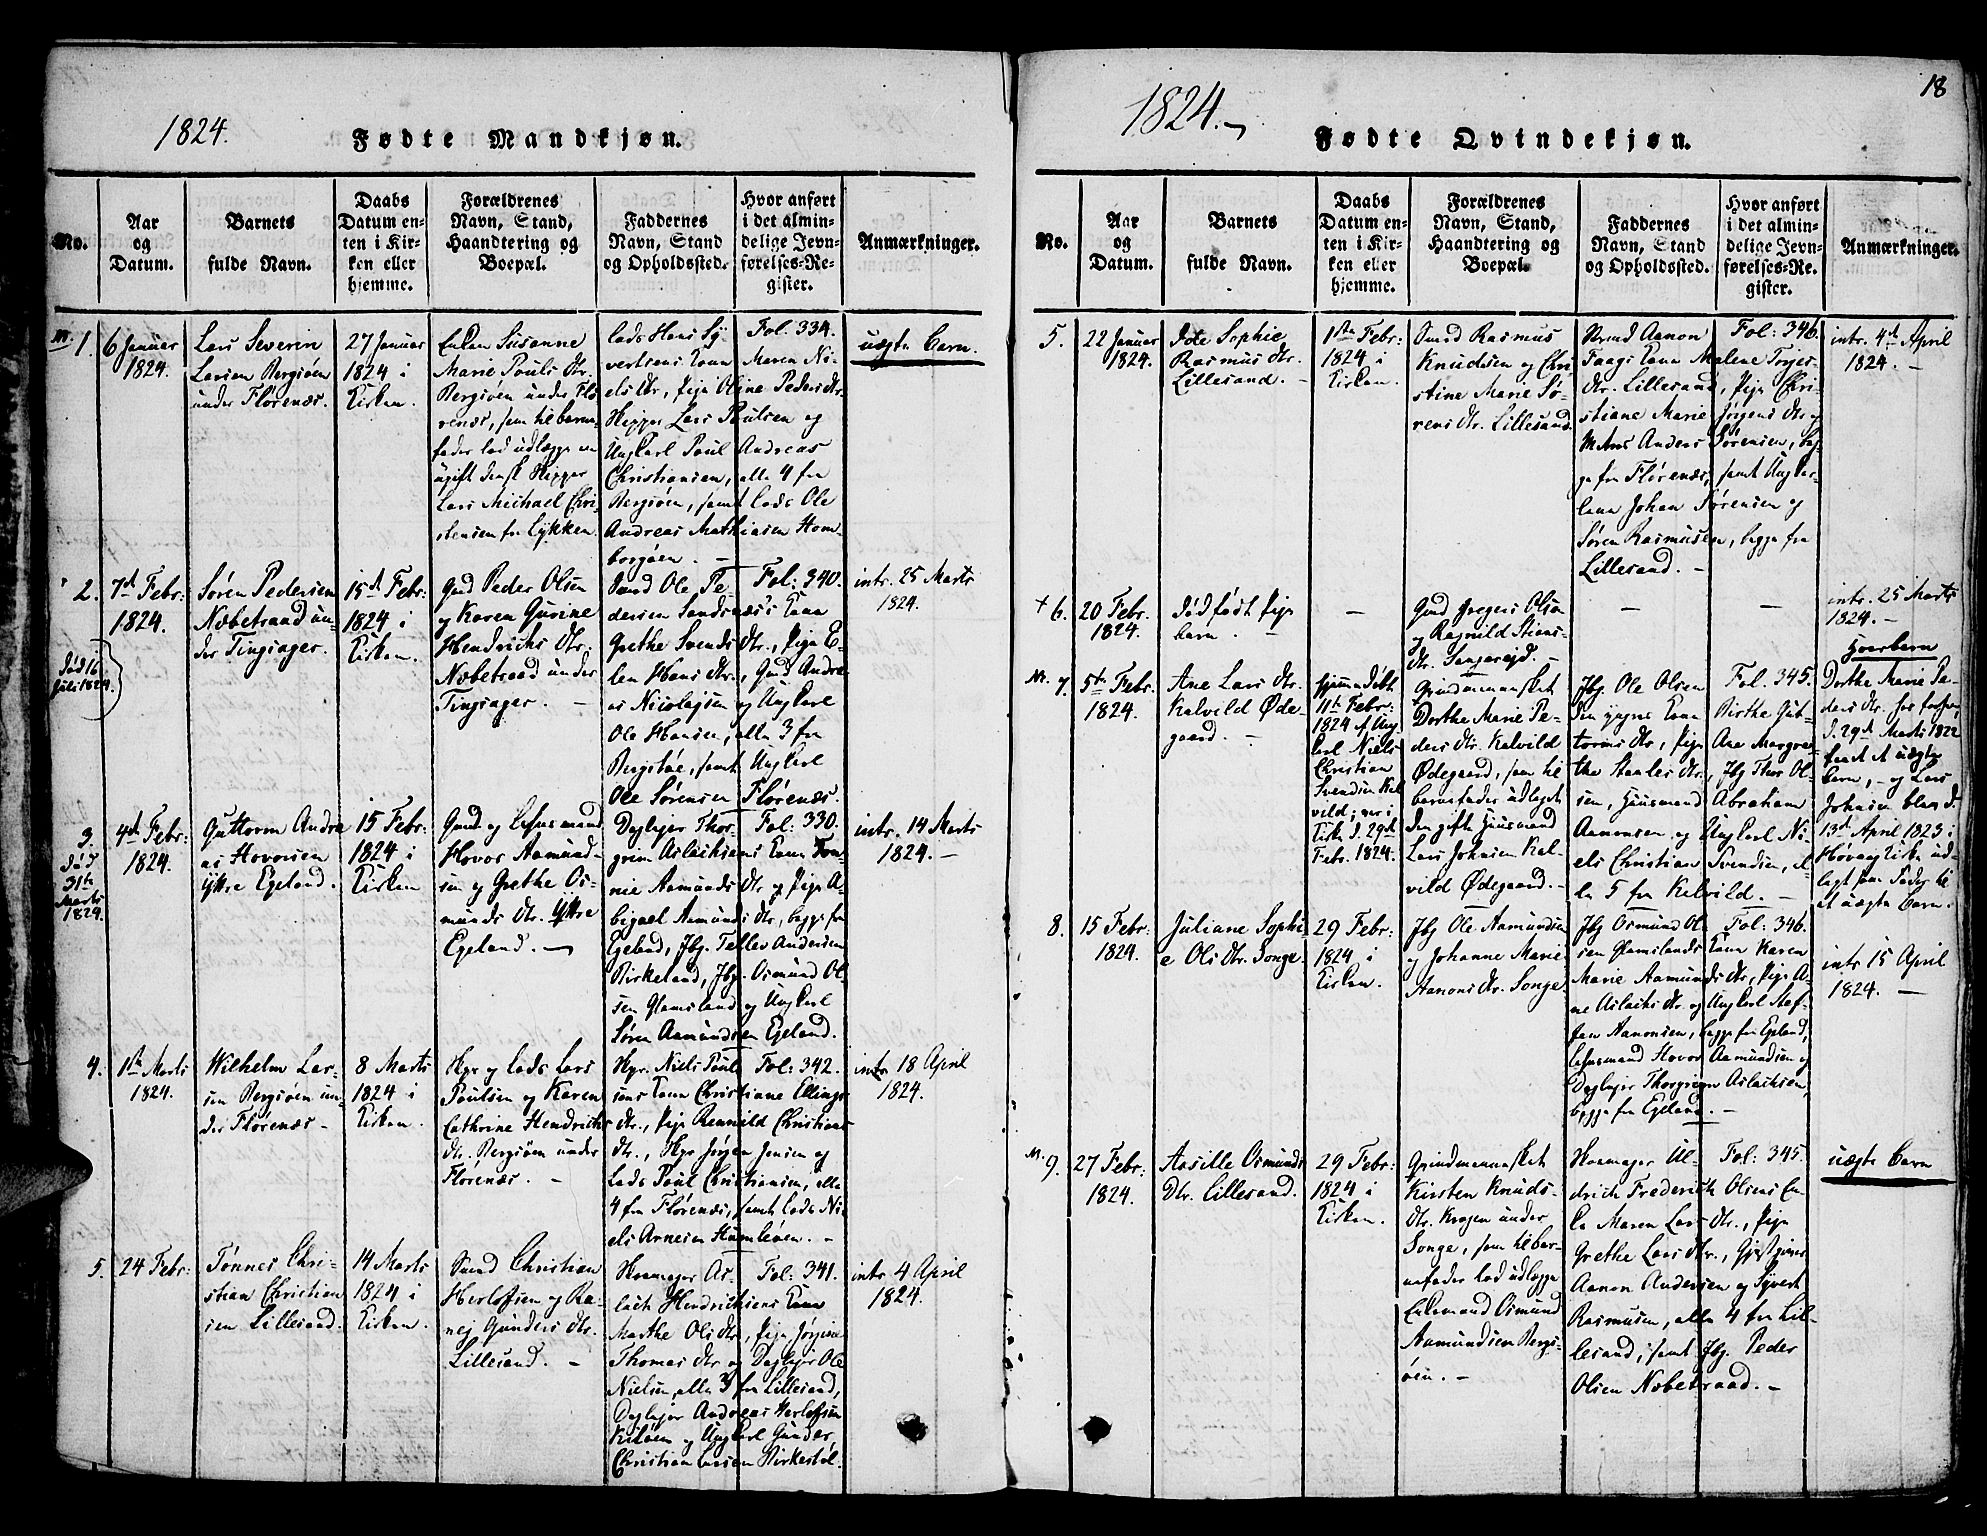 18
1824.
Fødte Mandkjøn.
No.
Aar
og
Datum.
Barnets
fulde Navn.
Daabs
Datum en-
ten i Kir-
ken eller
hjemme.
Forældrenes
Navn, Stand,
Haandtering og
Boepæl.
Faddernes
Navn, Stand
og Opholdssted.
Hvor anført
i det almin-
delige Jevn-
førelses-Re-
gister.
Anmærkninger.
1.
6 Januar
1824.
Lars Severin
Larsen Bergsøen
under Florenæs.
27 Januar
1824 i
Kirken.
Enken Susanne
Marie Pouls Dr.
Bergsøen under Flo
renæs, som til barne
fader lod udlægge en
ugift dansk Skipper
Lars Michael Chri
stensen fra Lykken
Lods Hans Sy-
vertsens Kone Maren Ni-
els Dr., Pige Oline Peders Dr.
Skipper Lars Poulsen og
Ungkarl Poul Andreas
Christiansen, alle 4 fra
Bergsøen, samt Lods Ole
Andreas Mathiasen Hom
borgøen. –
Fol. 334.
uægte barn.
2.
Død 16
Juli 1824.
7de Febr:
1824.
Søren Pedersen
Nobetraad un-
der Tingsager.
15de Febr:
1824 i
Kirken.
Gmd Peder Olsen
og Karen Gurine
Hendrichs Dr.
Nobetraad under
Tingsager. –
Smd Ole Pe-
dersen Sandsnæs's Kone
Grethe Svends Dr., Pige E-
len Hans Dr., Gmd Andre
as Nicolajsen og Ungkarl
Ole Hansen, alle 3 fra
Bergstøe, samt Ungkarl
Ole Sørensen Florenæs.
Fol: 340.
intr. 25 Marts
1824.
3.
Død
31te
Marts
1824.
4de Febr:
1824.
Guttorm Andre
as Hovorsen
Yttre Egeland.
15 Febr:
1824 i
Kirken
Gmd og Lehnsmand
Hovor Aamund-
sen og Grethe Os-
munds Dr. Yttre
Egeland. –
Dagleier Thor-
grim Aslachsens Kone Ton-
nie Aamunds Dr. og Pige A-
bigael Aamunds Dr., begge fra
Egeland, Jbg. Tellev Andersen
Birkeland, Jbg Osmund Ol-
sen Glamsland og Ungkarl
Søren Aamundsen Egeland.
Fol: 330.
intr. 14 Marts
1824. –
4.
1te Marts
1824.
Wilhelm Lar-
sen Bergsøen un-
der Florenæs –
8 Marts
1824 i
Kirken.
Skpr og Lods Lars
Poulsen og Karen
Cathrine Hendrichs
Dr. Bergsøen under
Florenæs. –
Skpr. Niels Poul
sens Kone Christiane Ellings
Dr., Pige Rennild Christians
Dr., Skpr Jørgen Jensen og
Lods Poul Christiansen, alle
4 fra Florenæs, samt Lods Ni-
els Arnesen Humløen. –
Fol: 342.
intr. 18 April
1824.
5.
24 Febr:
Tønnes Chri-
stian Christian
sen Lillesand.
14 Marts
1824 i
Kirken
Smd Christian
Herlofsen og Ra-
nej Gunders Dr.
Lillesand. –
Skomager As-
lach Hendrichsens Kone
Marthe Ols Dr., Pige Jørgine
Thomas Dr og Dagleier Ole
Nielsen, alle 3 fra Lillesand,
Dagleier Andreas Herlofsen
og Ungkarl Gunder
Christian Birkestøl.
Fol: 341.
intr. 4 April
1824.
1824.
Fødte Qvindekjøn.
No.
Aar
og
Datum.
Barnets
fulde Navn.
Daabs
Datum en-
ten i Kir-
ken eller
hjemme.
Forældrenes
Navn, Stand,
Haandtering og
Boepæl.
Faddernes
Navn, Stand
og Opholdssted.
Hvor anført
i det almin-
delige Jevn-
førelses-Re-
gister.
Anmærkninger.
5.
22 Januar
1824.
Ide Sophie
Rasmus Dr.
Lillesand. –
1te Febr:
1824 i
Kirken.
Smd Rasmus
Knudsen og Chri
stine Marie Sø-
rens Dr. Lillesand.
Strmd Aanon
Taags Kone Malene Tryges
Dr. Lillesand, Pige Chri-
stiane Marie Jørgens Dr og
Anders Sørensen, beg-
ge fra Florenæs, samt Ungkar-
lene Johan Sørensen og
Søren Rasmusen, begge fra
Lillesand. –
Fol: 346.
intr. 4de April
1824. –
+ 6.
20 Febr.
1824.
Dødfødt Pige
barn. –
–
Gmd Gregers Olsen
og Ragnild Stians
Dr. Sangereid. –
–
–
intr. 25 Marts
1824. –
7.
5te Febr.
1824.
Ane Lars Dr.
Kalvild Øde-
gaard. –
hjemmedøbt
11te Febr:
1824 af Ung
karl Niels
Christian
Svendsen Kal
vild; er i
Kirk. d. 29de
Febr. 1824.
Qvindemennesket
Dorthe Marie Pe-
ders Dr. Kalvild
Ødegaard, som til
barnefader udlagde
den gifte Huusmand
Lars Johnsen Kal-
vild Ødegaard. –
Jbg. Ole Olsen
den yngres Kone Birthe Gut-
torms Dr., Pige Ane Margre-
the Staales Dr., Jbg Thor Ol-
sen, Huusmand Abraham
Aanonsen og Ungkarl Ni-
els Christian Svendsen, al-
le 5 fra Kalvild. –
Fol. 345.
Hoerbarn
Dorthe Marie Pe-
ders Dr. har forhen
d. 29de Marts 1822
født et uægte
barn, – og Lars
Johnsen blev d.
13de April 1823 i
Høvaag Kirke ud-
lagt som Fader til
et uægte barn.
8.
15 Febr:
1824.
Juliane Sophi-
e Ols Dr. Songe.
29 Febr:
1824 i
Kirken.
Jbg Ole Aamundsen
og Johanne Marie
Aanons Dr. Songe
Jbg Osmund Ol
sen Glamslands Kone Karen
Marie Aamunds Dr., Pige A-
ne Aslachs Dr. og Ungkarl Stef-
fen Aanonsen, begge fra Egeland,
Lehnsmand Hovor Aamundsen og
Dagleier Thorgrim Aslachsen,
begge fra Egeland. –
Fol: 346.
intr. 15 April
1824. –
9.
27 Febr:
1824.
Aasille Osmunds
Dr. Lillesand.
29 Febr:
1824 i
Kirken.
Qvindemennesket
Kirsten Knuds-
Dr. Kragen under
Songe, som til bar-
nefader lod udlægge
Enkemand Osmund
Aamundsen Bergs-
øen. –
Skomager Ul-
drich Frederich Olsens En-
ke Maren Lars Dr., Pige
Grethe Lars Dr., Gjestgiver
Aanon Andersen og Syvert
Rasmusen, alle 4 fra Lil-
lesand, samt Jbg. Peder
Olsen Nobetraad. –
Fol: 345.
uægte barn